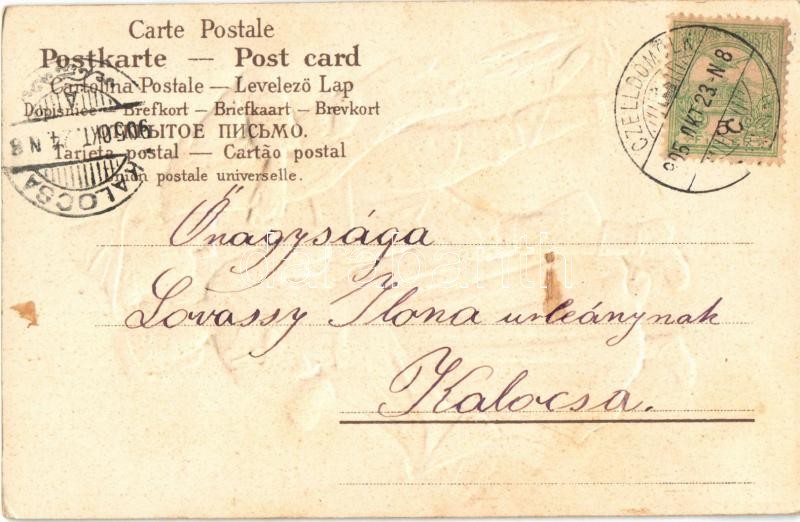 Carte Postale
Postkarte — Post card
Cartolina Postale — Levelező Lap
Dopisnice — Brefkort — Briefkaart — Brevkort
ПИСЬМО.
Tarjeta postal — Cartão postal
Union postale universelle.
KALOCSA
905 OKT. N8
CZELLDÖMÖLK
905 OKT 23 N8
Őnagysága
Lovassy Ilona urleánynak
Kalocsa.